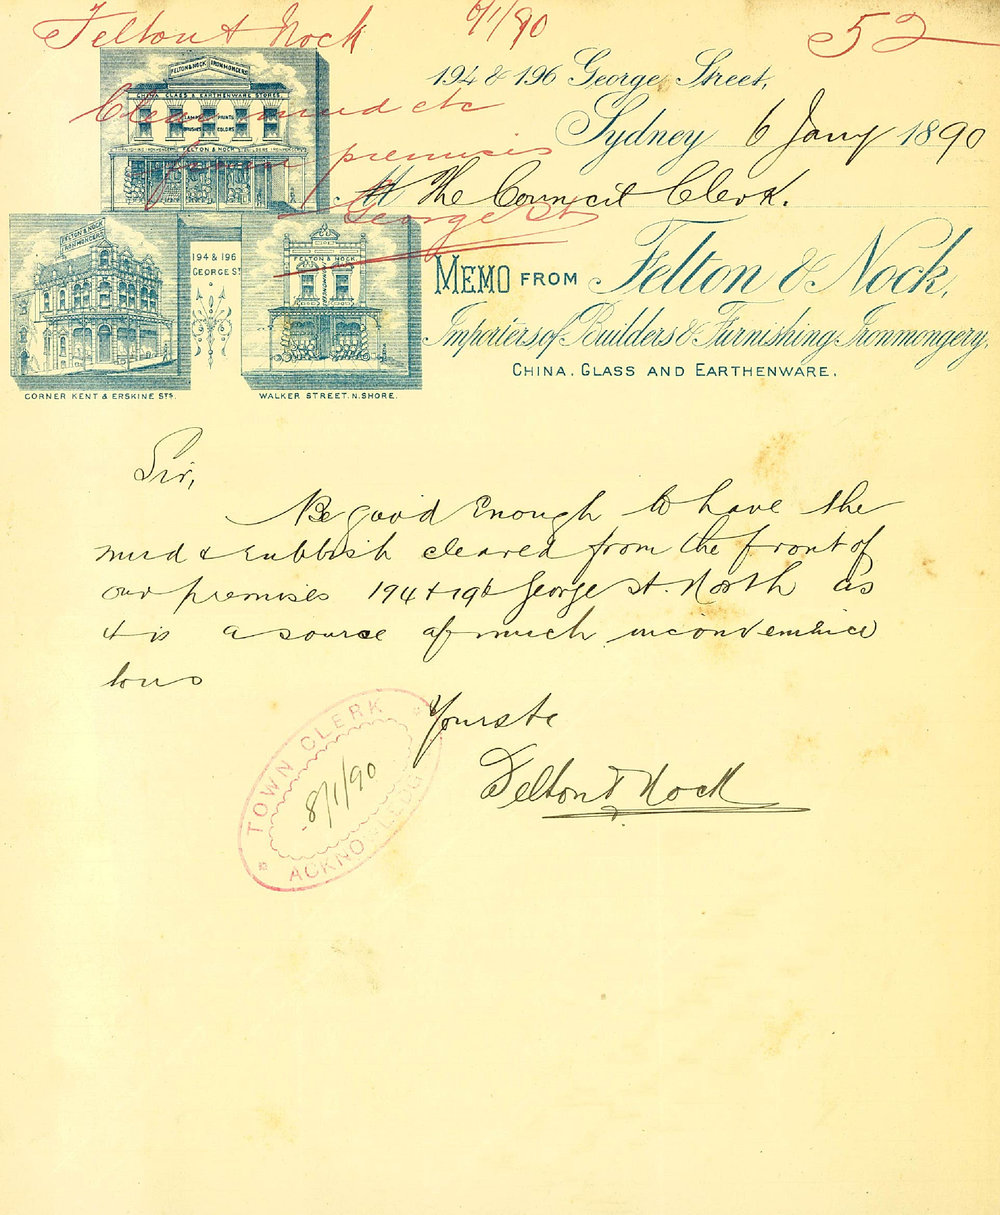 Felton & Nock 6/1/90 52
Clear mud etc
from premises
George St
194 & 196 George Street,
Sydney 6 Jany 1890
The Council Clerk.
FELTON & NOCK IRONMONGERS
CHINA GLASS & EARTHENWARE STORES
LAMPS PAINTS
BRUSHES COLORS
FELTON & NOCK
194 & 196
GEORGE ST
FELTON & NOCK
IRONMONGERS
FELTON & NOCK
CORNER KENT & ERSKINE STS.
WALKER STREET. N. SHORE.
MEMO FROM Felton & Nock,
Importers of Builders & Furnishing Ironmongery,
CHINA. GLASS AND EARTHENWARE.
Sir,
Be good Enough to have the
mud & rubbish cleared from the front of
our premises 194 & 196 George St. North as
it is a source of much inconvenience
to us
Yours tc
Felton & Nock
TOWN CLERK
8/1/90
ACKNOWLEDGD